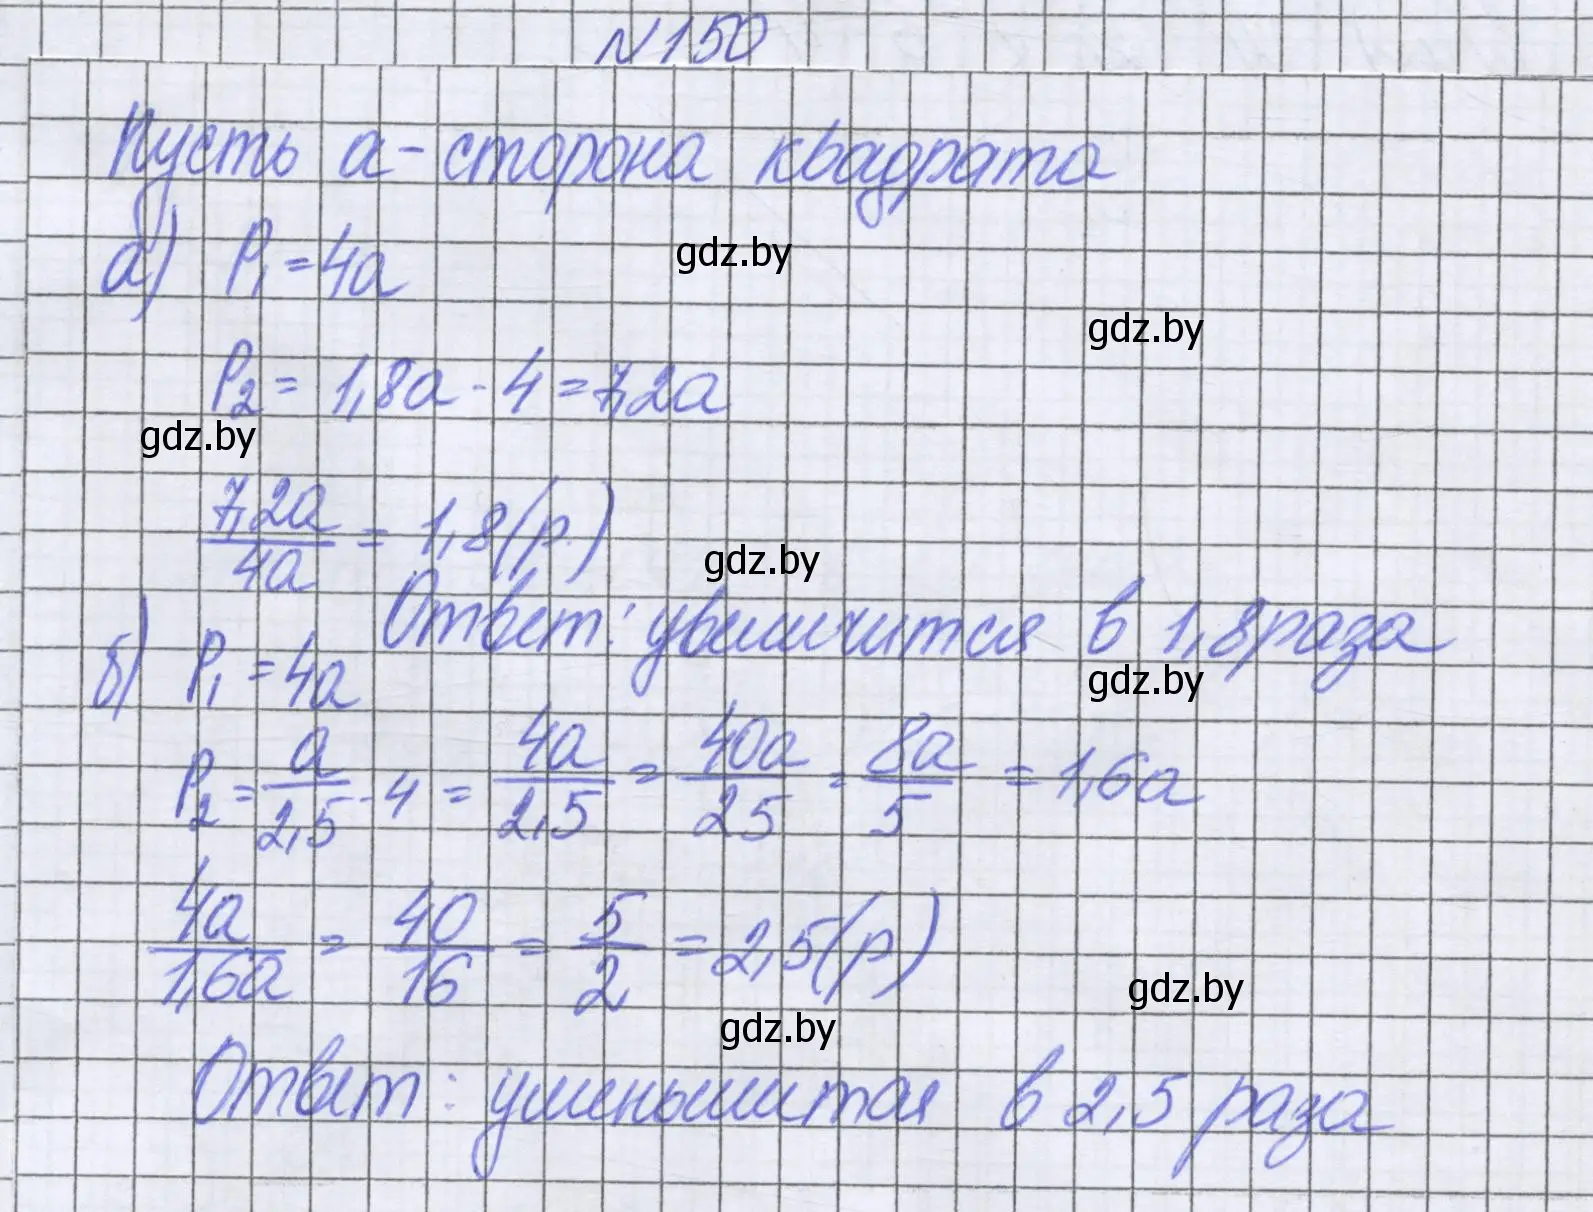 №150
Пусть a - сторона квадрата
а) P₁ = 4a
gdz.by
gdz.by
P₂ = 1,8a · 4 = 7,2a
gdz.by
7,2a/4a = 1,8 (р.)
gdz.by
Ответ: увеличится в 1,8 раза
б) P₁ = 4a
gdz.by
P₂ = a/2,5 · 4 = 4a/2,5 = 40a/25 = 8a/5 = 1,6a
4a/1,6a = 40/16 = 5/2 = 2,5 (р)
gdz.by
gdz.by
Ответ: уменьшится в 2,5 раза